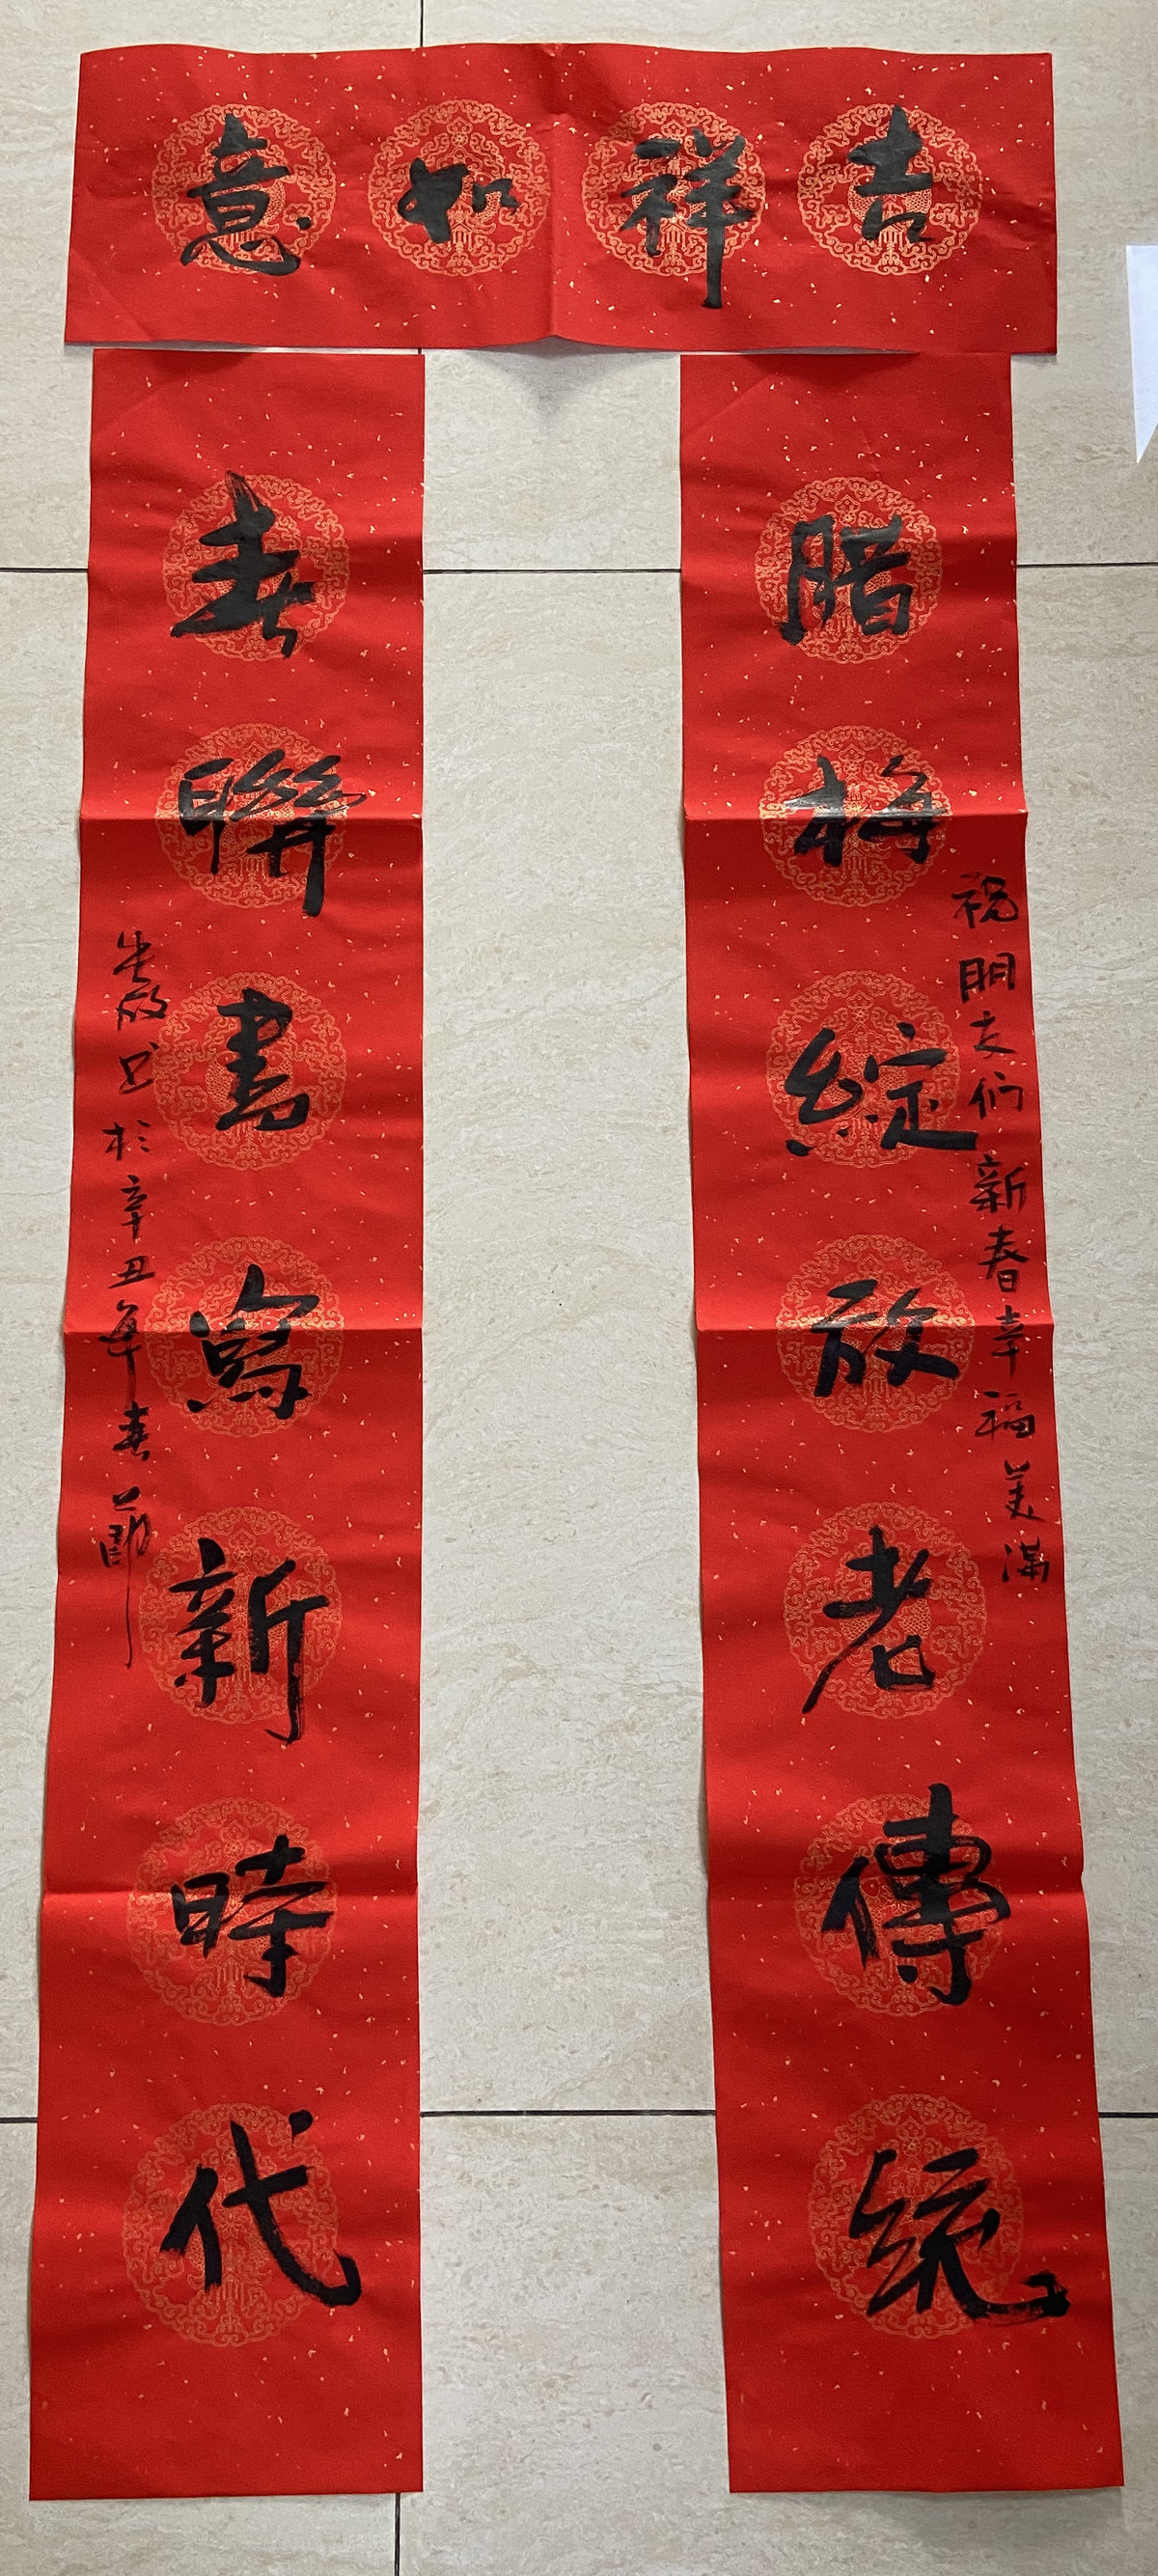 吉祥如意
腊梅綻放老傳統
祝朋友们新春幸福美满
春聯書寫新時代
书於辛丑年春節